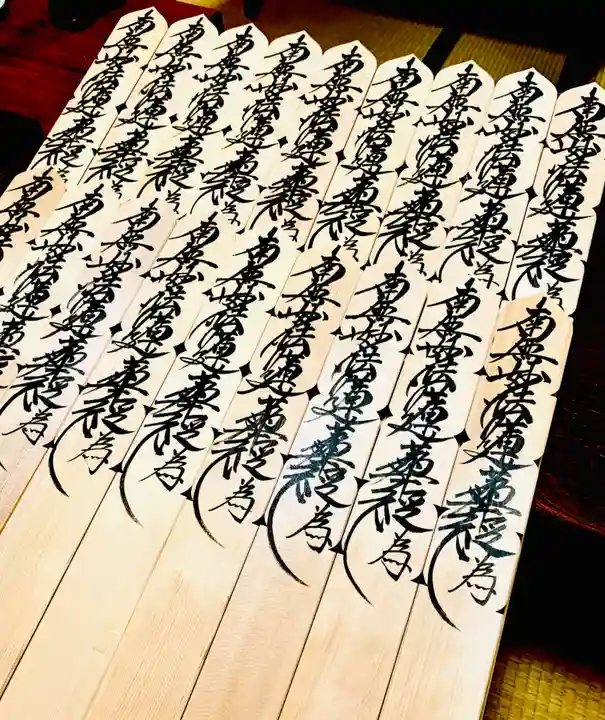 南無妙法蓮華経
南無妙法蓮華経
南無妙法蓮華経
南無妙法蓮華経
南無妙法蓮華経
南無妙法蓮華経
南無妙法蓮華経
南無妙法蓮華経
南無妙法蓮華経
南無妙法蓮華経為
南無妙法蓮華経為
南無妙法蓮華経為
南無妙法蓮華経為
南無妙法蓮華経為
南無妙法蓮華経為
南無妙法蓮華経為
南無妙法蓮華経為